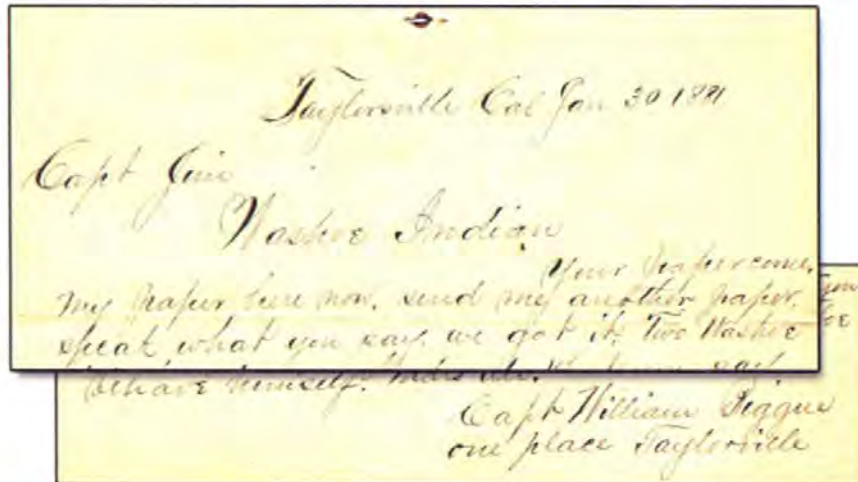 Taylorsville Cal Jan 30 1881
Capt Jim
Washoe Indian
Your paper come,
my paper here now. send my another paper.
speak what you say. we got it. Two Washoe
behave himself.
Capt William
one place Taylorville